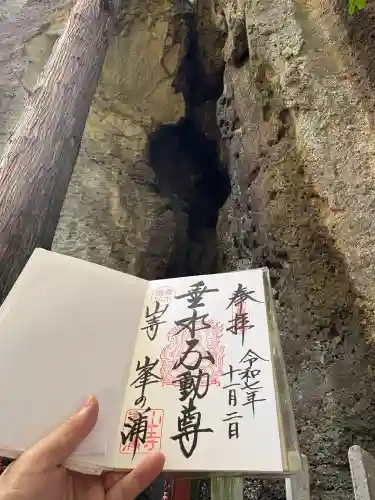 奉拝
令和七年
十一月二日
垂水不動尊
峠
峯の浦
山寺